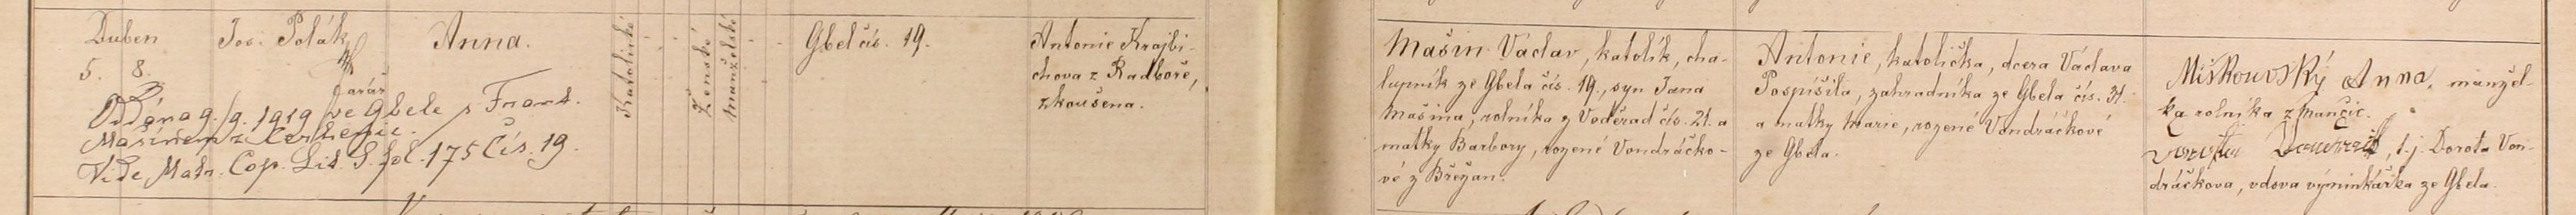 Duben
5. 8.
Jos. Polák
farář
Anna.
Oddána 9./9. 1919 ve Gbele s Frant.
Mašínem z
Vide Matr. Cop. Lit. G. fol. 175 Čís. 19.
Katolické
Ženské
Manželské
Gbel čís. 19.
Antonie Krajbi-
chova z Radboře,
zkoušena.
Mašin Václav, katolík, cha-
lupník ze Gbela čís. 19., syn Jana
Mašina, rolníka z Voděrad čís. 21. a
matky Barbory, rozené Vondráčko-
vé z Břežan.
Antonie, katolička, dcera Václava
Pospíšila, zahradníka ze Gbela čís. 31.
a matky Marie, rozené Vondráčkové
ze Gbela.
Miškouvský Anna, manžel-
ka rolníka z Mančic.
, t. j. Dorota Von-
dráčkova, vdova výminkářka ze Gbela.